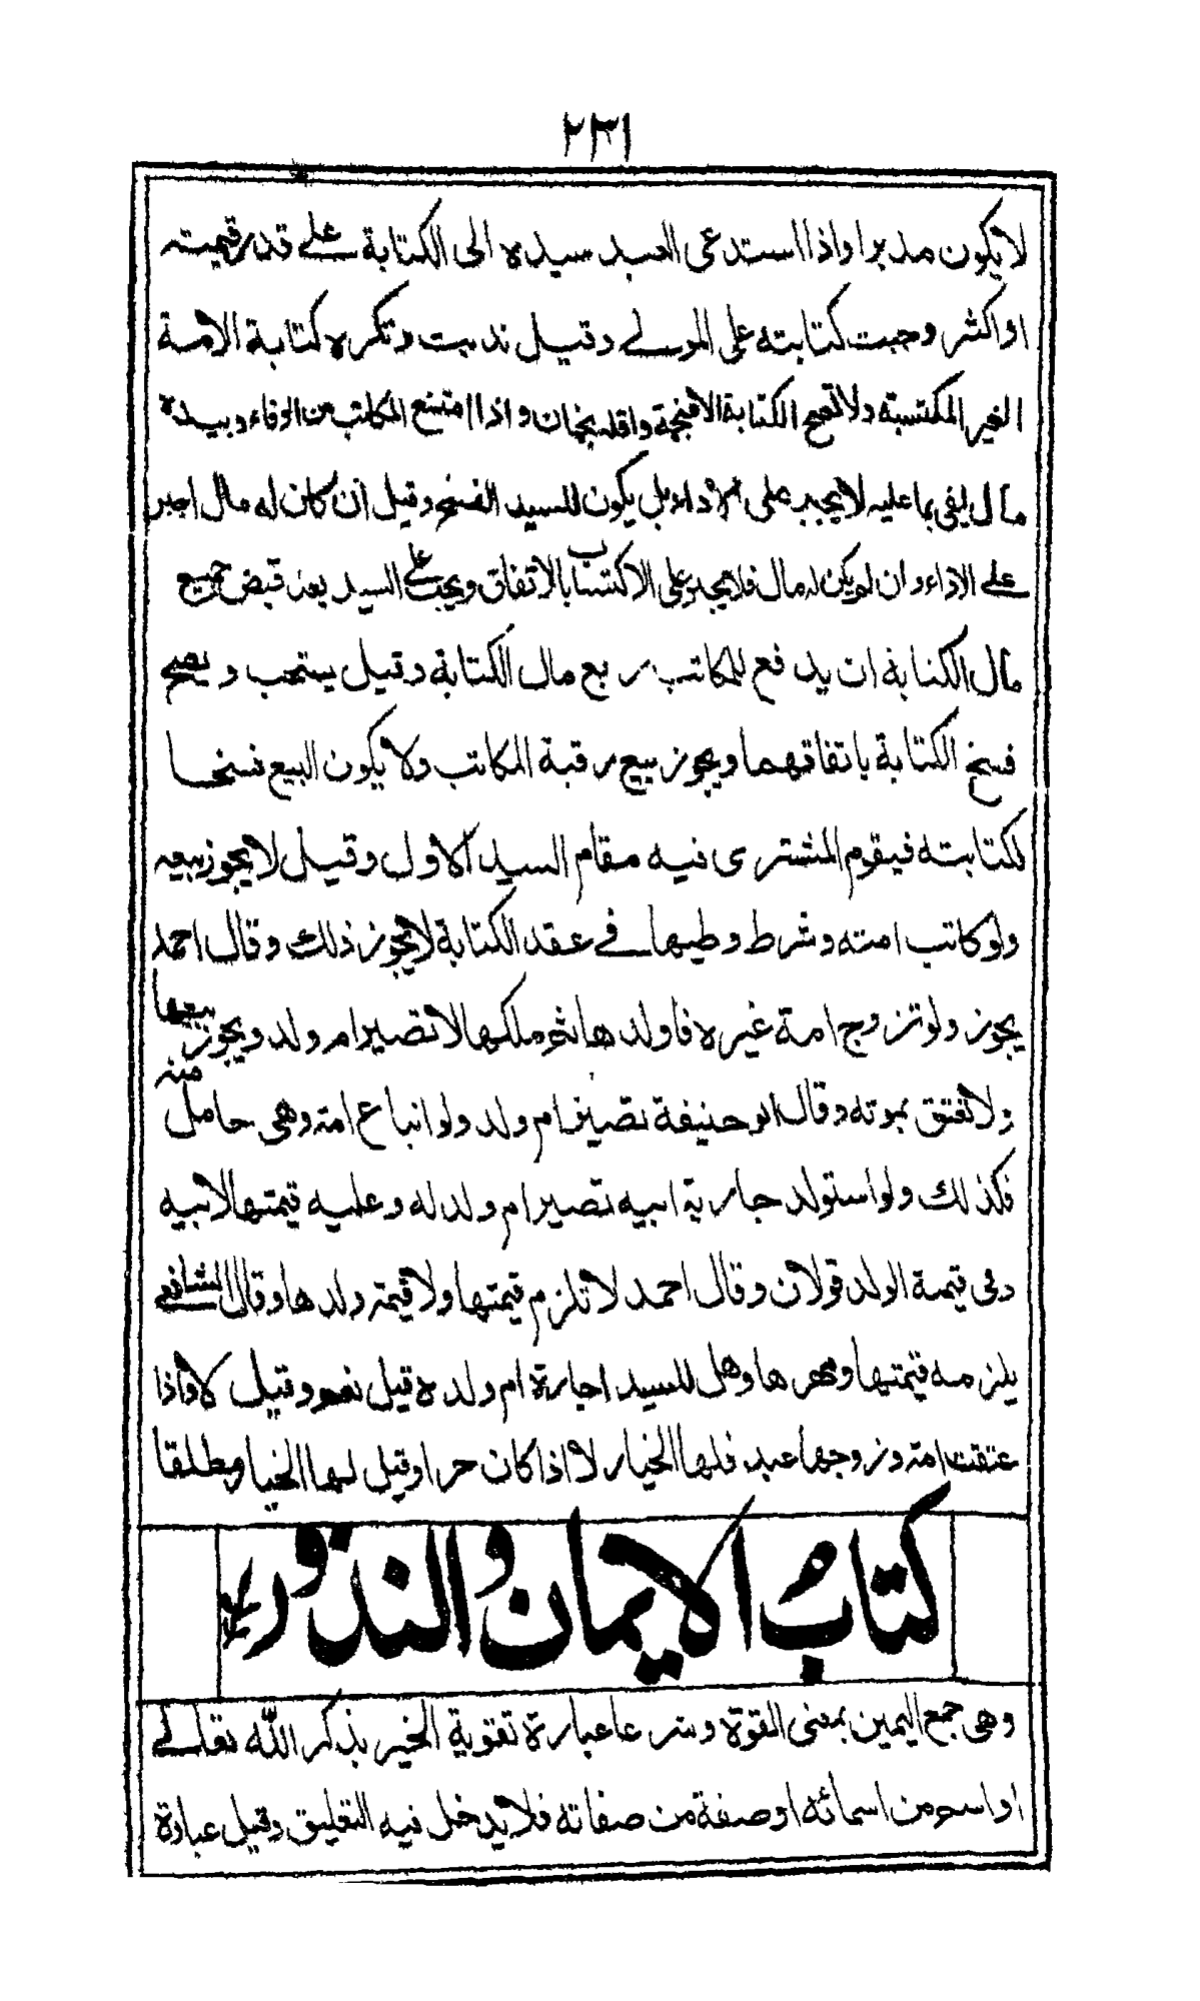 ٢٣١
لا يكون مدبرا واذا استدعى العبد سيده الى الكتابة على قدر قيمته
او اكثر وجبت كتابته على المولى وقيل ندبت وتكره كتابة الامة
الغير المكتسبة ولا تصح الكتابة الا منجمة واقله نجمان واذا امتنع المكاتب من الوفاء وبيده
مال يفى بما عليه لا يجبر على الاداء بل يكون للسيد الفسخ وقيل ان كان له مال اجبر
على الاداء وان لم يكن له مال فلا يجبر على الاكتساب بالاتفاق ويجب على السيد بعد قبض جميع
مال الكتابة ان يدفع للمكاتب ربع مال الكتابة وقيل يستحب ويصح
فسخ الكتابة باتفاقهما ويجوز بيع رقبة المكاتب ولا يكون البيع فسخا
لكتابته فيقوم المشترى فيه مقام السيد الاول وقيل لا يجوز بيعه
ولو كاتب امته وشرط وطيها فى عقد الكتابة لا يجوز ذلك وقال احمد
يجوز ولو تزوج امة غيره فاولدها ثم ملكها لا تصير ام ولد ويجوز بيعها
ولا تعتق بموته وقال ابو حنيفة تصير ام ولد ولو انباع امته وهى حامل منه
فكذلك ولو استولد جارية ابيه تصير ام ولد له وعليه قيمتها لابيه
وفى قيمة الولد قولان وقال احمد لا تلزم قيمتها ولا قيمة ولدها وقال الشافعى
يلزمه قيمتها ومهرها وهل للسيد اجارة ام ولده قيل نعم وقيل لا واذا
عتقت امته وزوجها عبد فلها الخيار لا اذا كان حرا وقيل لها الخيار مطلقا
كتاب الايمان والنذور
وهى جمع اليمين بمعنى القوة وشرعا عبارة تقوية الخبر بذكر الله تعالى
او اسم من اسمائه او صفة من صفاته فلا يدخل فيه التعليق وقيل عبارة